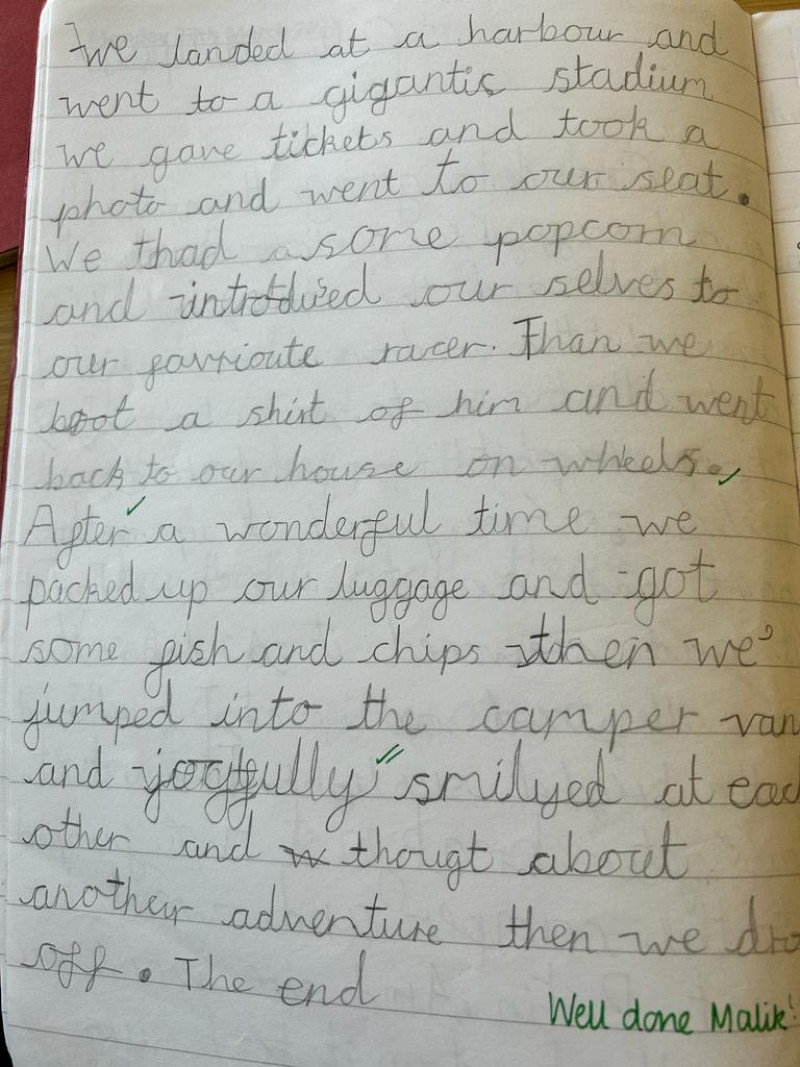 we landed at a harbour and
went to a gigantic stadium
we gave tickets and took a
photo and went to our seat.
We thad a some popcorn
and introduised our selves to
our favrioute racer. Than we
boot a shirt of him and went
back to our house on wheels.
After a wonderful time we
packed up our luggage and got
some fish and chips then we
jumped into the camper van
and joyfully smilyed at eac
other and thougt about
another adventure then we dro
off. The end
Well done Malik!